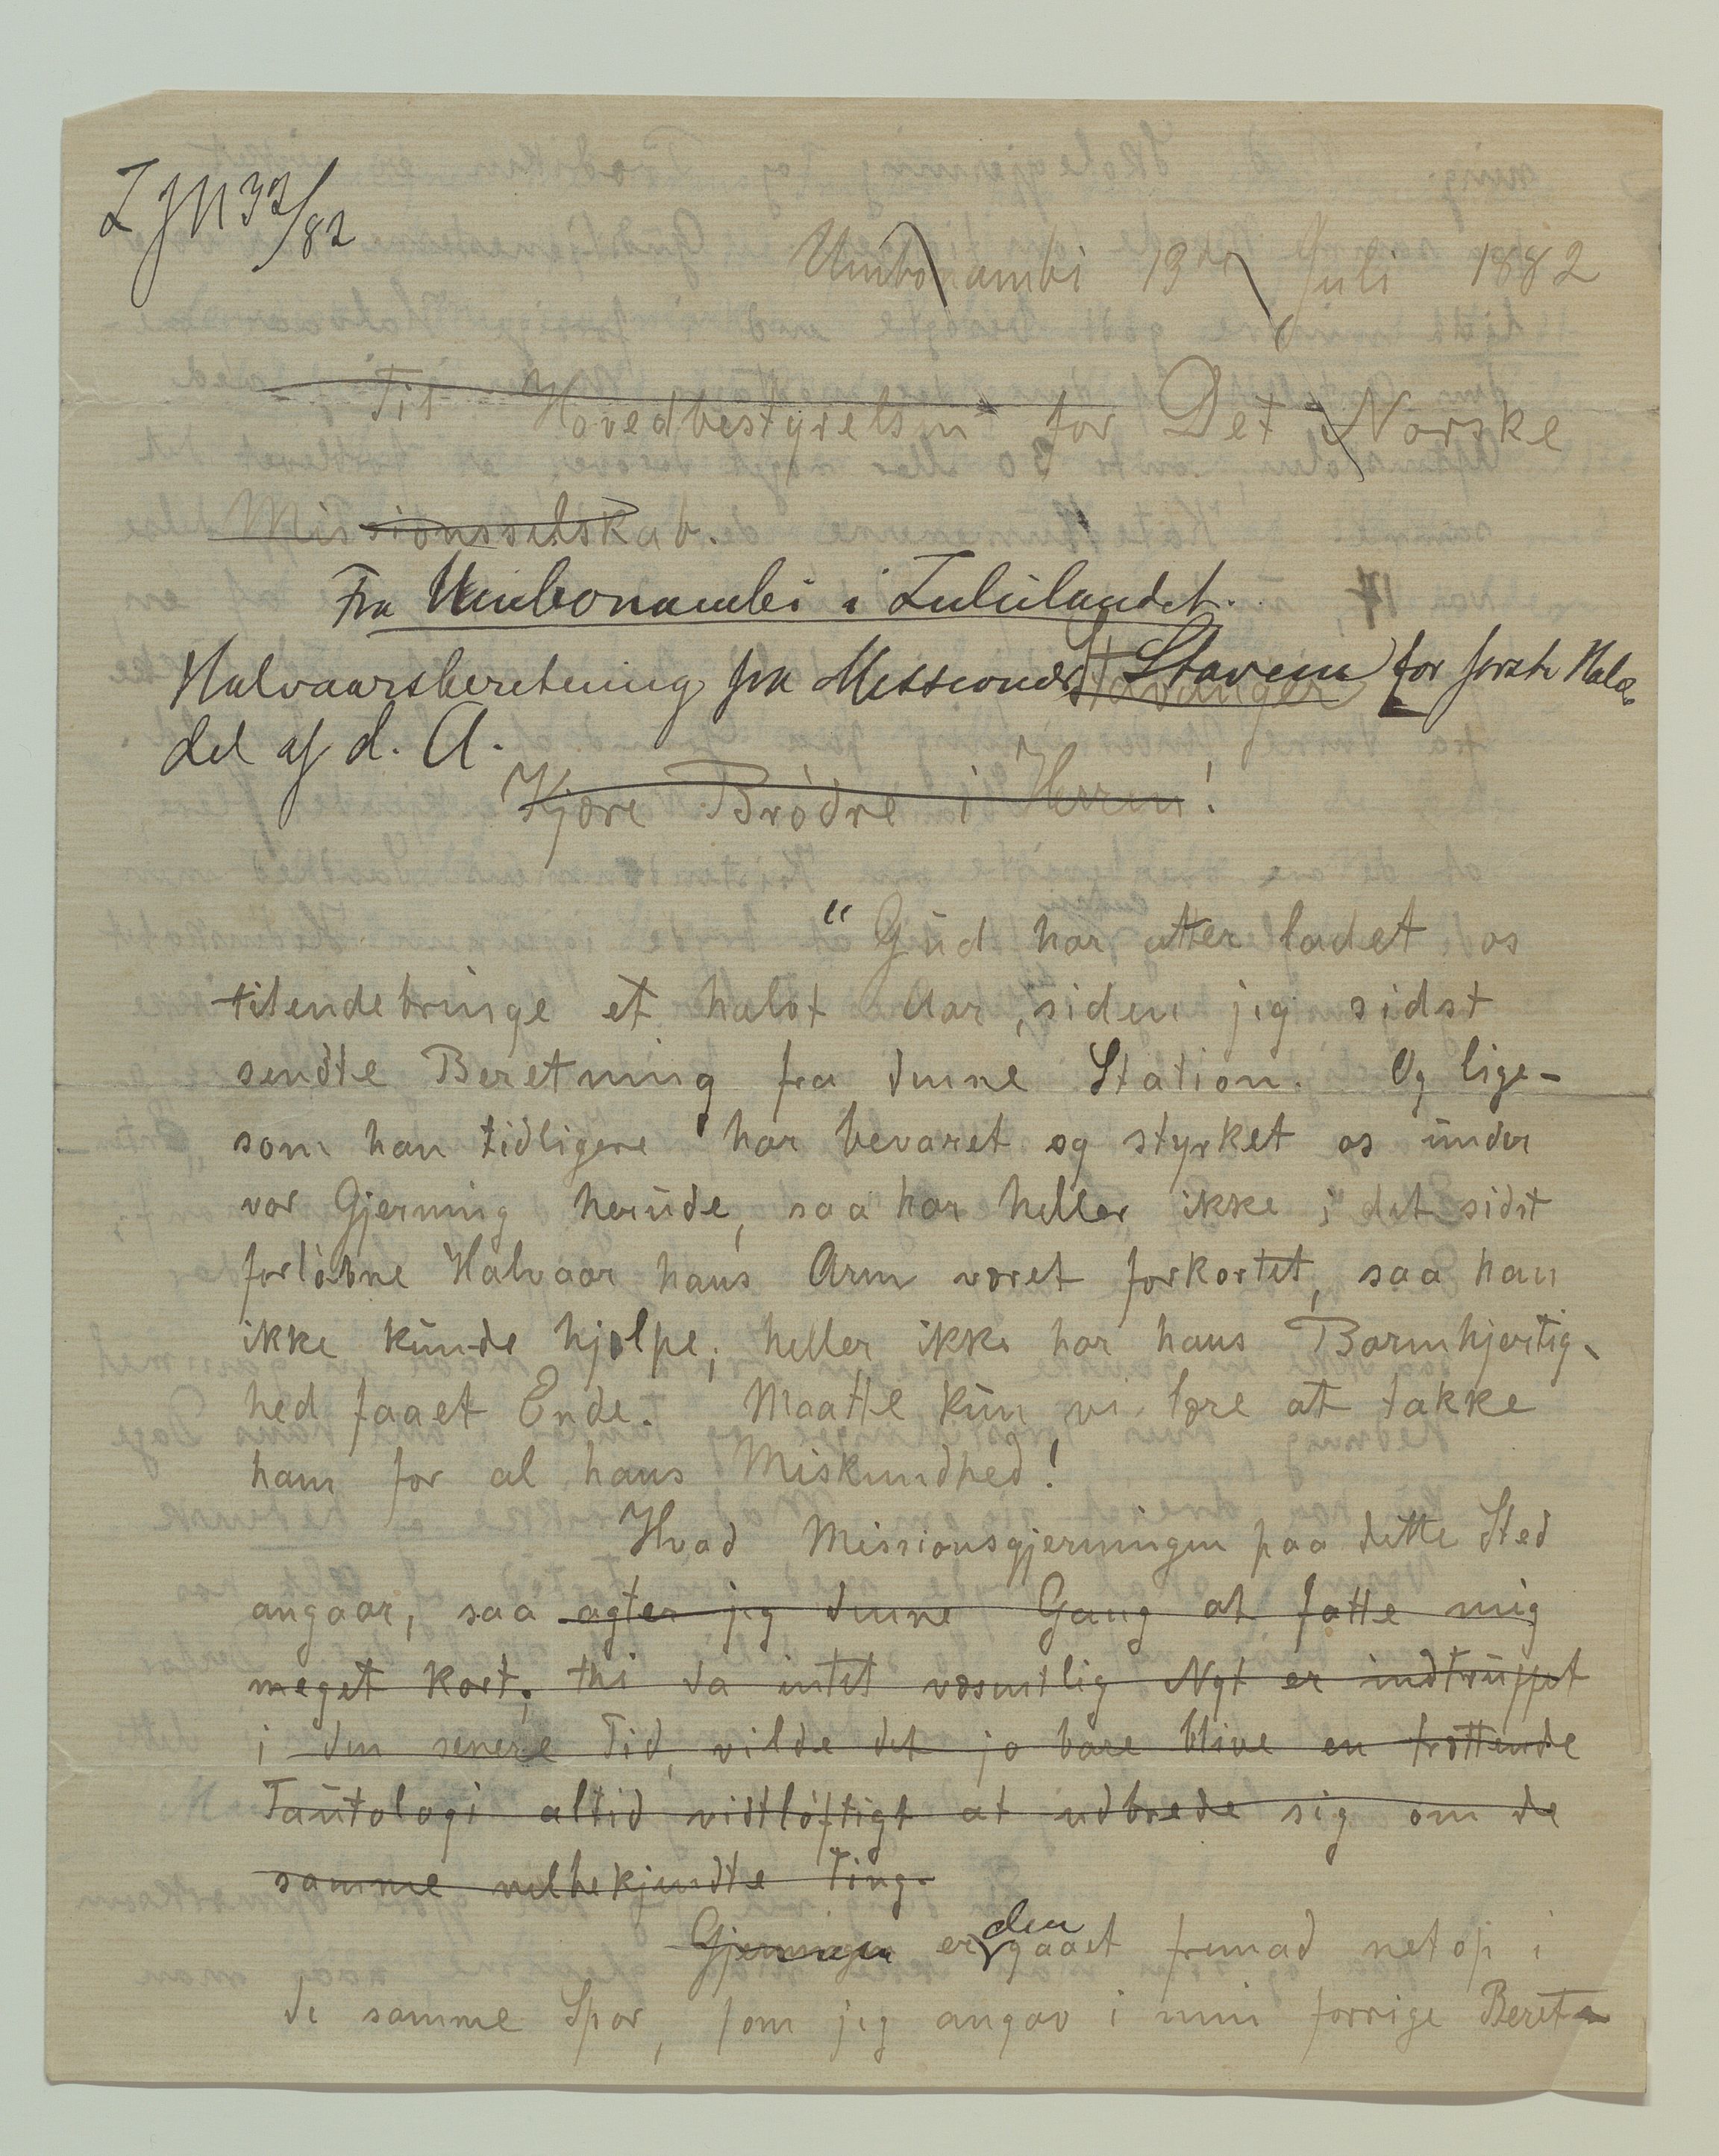 Z J N 32/82
Umbonambi 13de Juli 1882
Til Hovedbestyrelsen for Det Norske
Missionsselskab.
Fra Umbonambi i Zululandet.
Halvaarsberetning fra Missionær Stavem for første Halv-
Stavanger
del af d. A.
Kjære Brødre i Herren!
"Gud har atter ladet os
tilendebringe et halvt Aar, siden jeg sidst
sendte Beretning fra denne Station. Og lige-
som han tidligere har bevaret og styrket os under
vor Gjerning herude, saa har heller ikke i det sidst
forløbne Halvaar hans Arm været forkortet, saa han
ikke kunde hjælpe; heller ikke har hans Barmhjertig-
hed faaet Ende. Maatte kun vi lære at takke
ham for al hans Miskundhed!
Hvad Missionsgjerningen paa dette Sted
angaar, saa agter jeg denne Gang at fatte mig
meget kort; thi da intet væsentlig Nyt er indtruffet
i den senere Tid, vilde det jo bare blive en trættende
Tautologi altid vidtløftigt at udbrede sig om de
samme velbekjendte Ting.
Gjerningen er den gaaet fremad netop i
de samme Spor, som jeg angav i min forrige Beret-